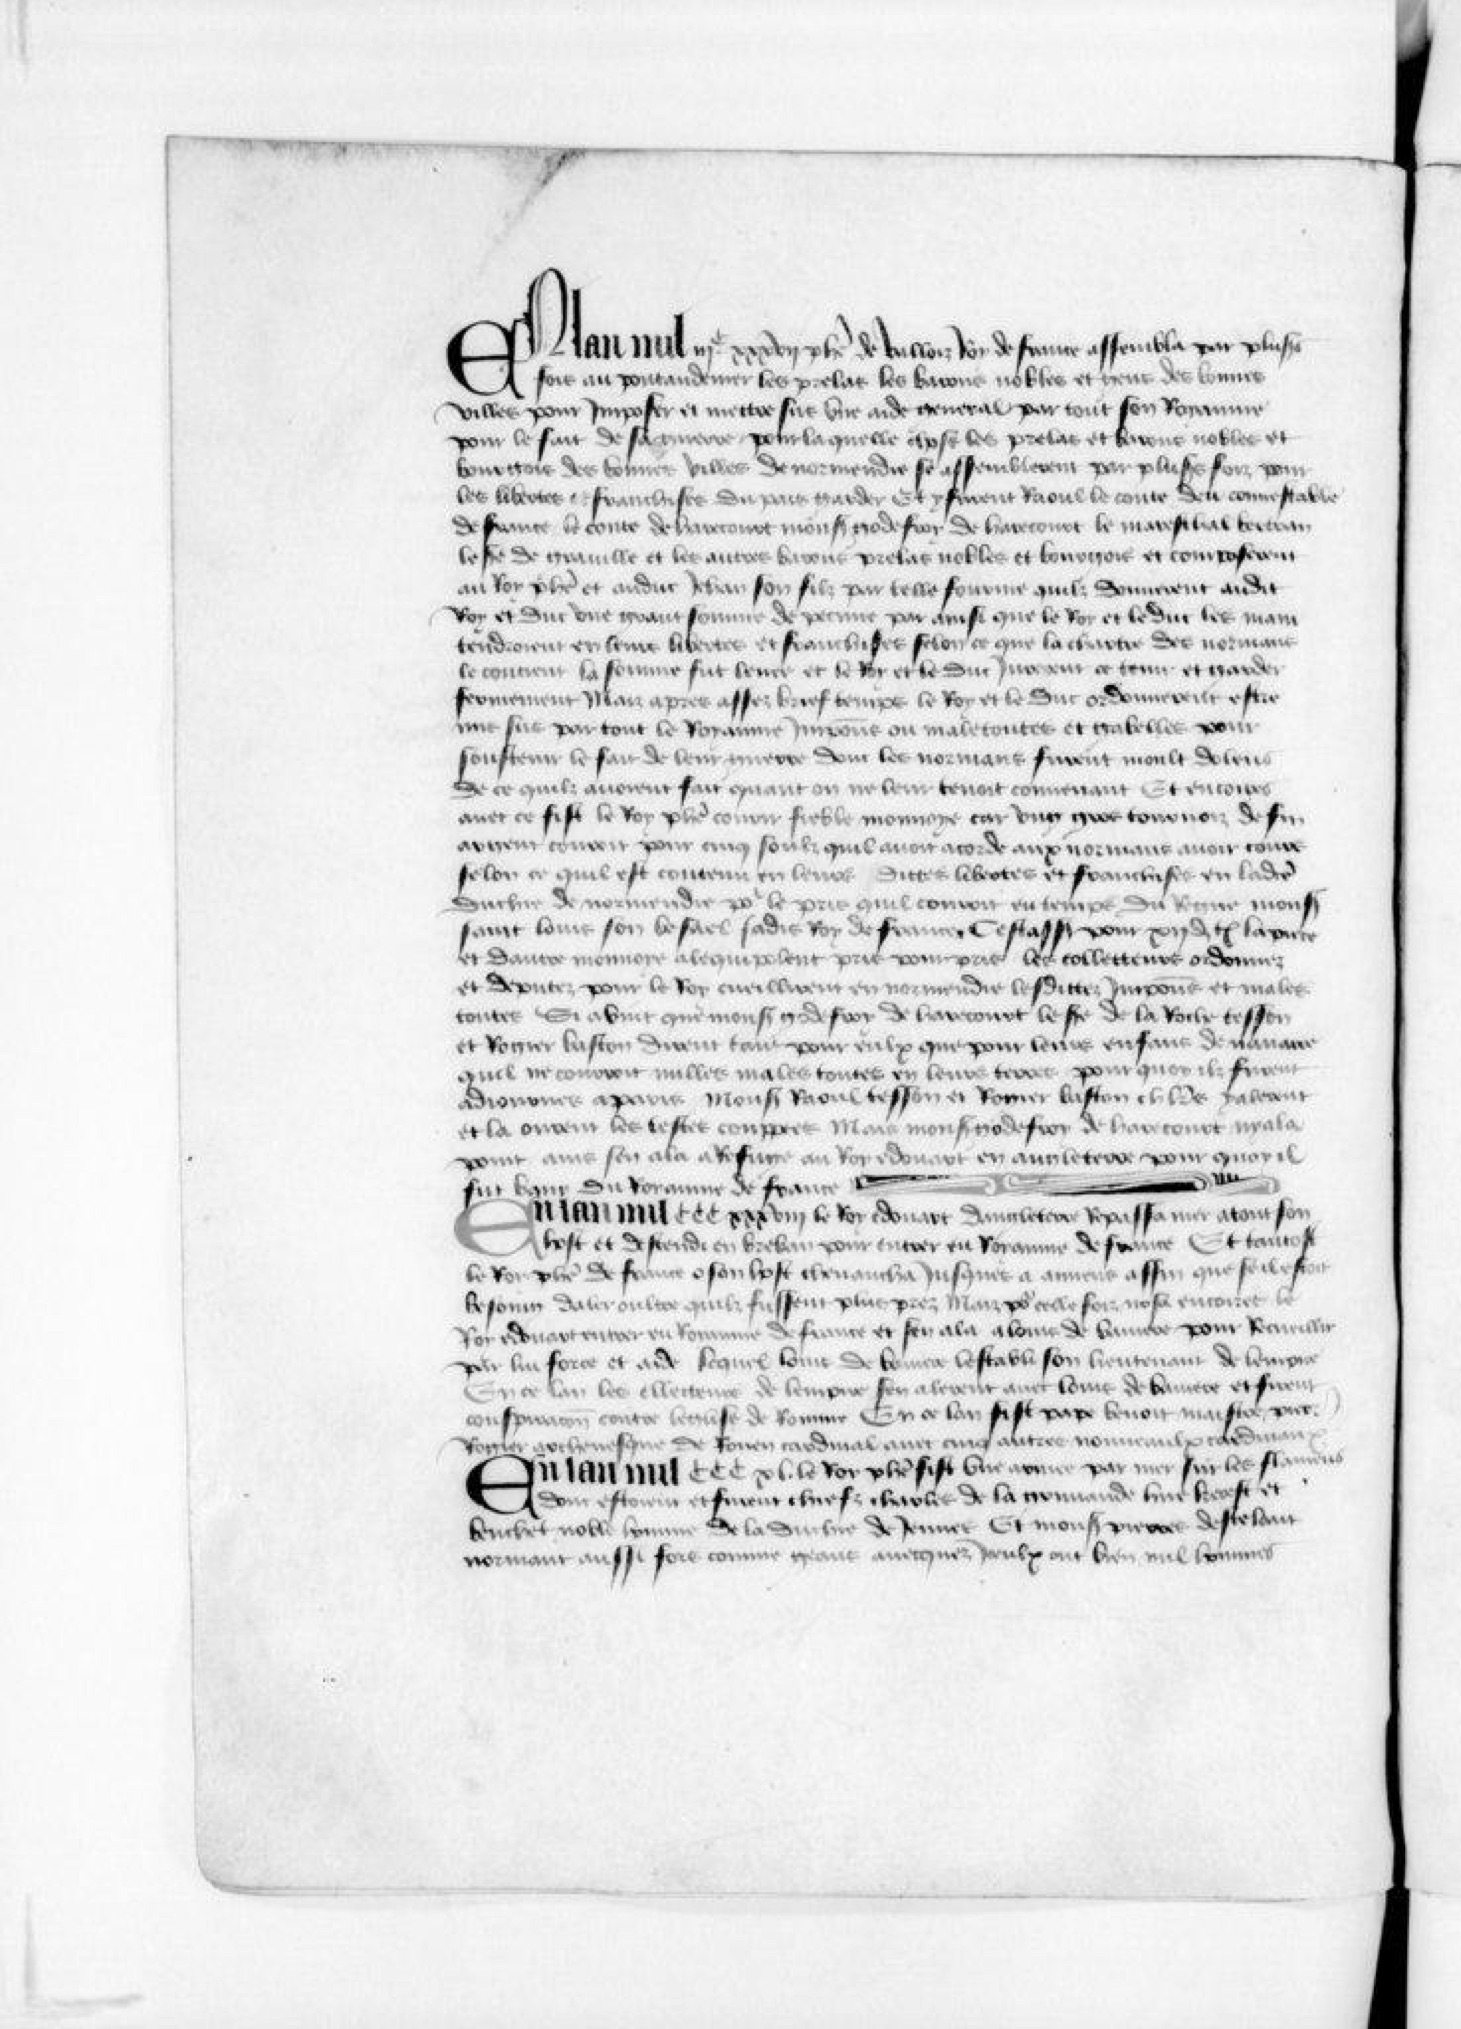 EN lan mil iijc xxxvij phe de vallois Roy de france assembla par plusrs
fois au pontaudemer les prelas les barons nobles et gens des bonnes
villes pour Imposer et mettre sus vne aide general par tout son Royaume
pour le fait de sa guerre pour laquelle chose les prelas et barons nobles et
bourgois des bonnes villes de normendie se assemblerent par plusrs foiz pour
les libertes et franchises du pais garder Et y furent Raoul le conte deu connestable
de france le conte de harecourt monsr godefroy de harecourt le mareschal bertran
le sire de grauille et les autres barons prelas nobles et bourgois et composerent
au Roy phe et au duc Jehan son filz par telle fourme quilz donnerent audit
Roy et duc vne grant somme de pecune par ainsi que le Roy et le duc les main
tendroient en leurs libertes et franchises selon ce que la chartre des normans
le contient la somme fut leuee et le Roy et le duc Jurerent ce tenir et garder
fermement Maiz apres assez brief temps le Roy et le duc ordonnerent estre
mis sus par tout le Royaume Impons ou maletoutes et gabelles pour
soustenir le fait de leur guerre dont les normans furent moult dolens
de ce quilz auoient fait quant on ne leur tenoit conuenant Et encores
auec ce fist le Roy phe courir fieble monnoye car vng gros tournoiz de fin
argent couroit pour cinq soulz quil auoit acorde aux normans auoir cours
selon ce quil est contenu en leurs dittes libertes et franchises en ladie
duchie de normendie por le pris quil couroit en temps du Regne monsr
saint louis son besael jadis Roy de france Cestassr pour xij d ts la piece
et dautre monnoye alequipolent pris pour pris les collecteurs ordonnez
et deputez pour le Roy cueillirent en normendie lesdittes Impons et males
toutes Si aduint que monsr godefroy de harecourt le sire de la Roche tesson
et Rogier baston dirent tant pour eulx que pour leurs enfans de nauarre
quil ne courroit nulles males toutes en leurs terres pour quoy ilz furent
adiournes a paris Monsr Raoul tesson et Rogier baston chlrs y alerent
et la orent les testes couppees Mais monsr godefroy de harecourt ny ala
point ains sen ala a Refuge au Roy edouart en angleterre pour quoy il
fut bany du Royaume de france
En lan mil CCC xxxviij le Roy edouart dangleterre Repassa mer a tout son
host et descendi en breban pour entrer en Royaume de france Et tantost
le Roy phe de france o son host cheuaucha Jusques a amiens affin que se il estoit
besoing daler oultre quilz fussent plus prez Maiz por celle foiz nosa encores le
Roy edouart entrer en Royaume de france et sen ala a louis de bauiere pour Recueillir
par lui force et aide lequel louis de bauiere lestabli son lieutenant de lempire
En ce lan les ellecteurs de lempire sen alerent auec louis de bauiere et firent
conspiracon contre leglise de Romme En ce lan fist pape benoit maistre pierre
Rogier archeuesque de Rouen cardinal auec cinq autres nouueaulx cardinaux
En lan mil CCC xl. le Roy phe fist vne armee par mer sur les flamens
dont estoient et furent chiefz charles de la grimaude hue kieret et
beuchet noble homme de la duchie de Jennes Et monsr pierres destelant
normant aussi fors comme geans auecquez Iceulx ont bien mil hommes